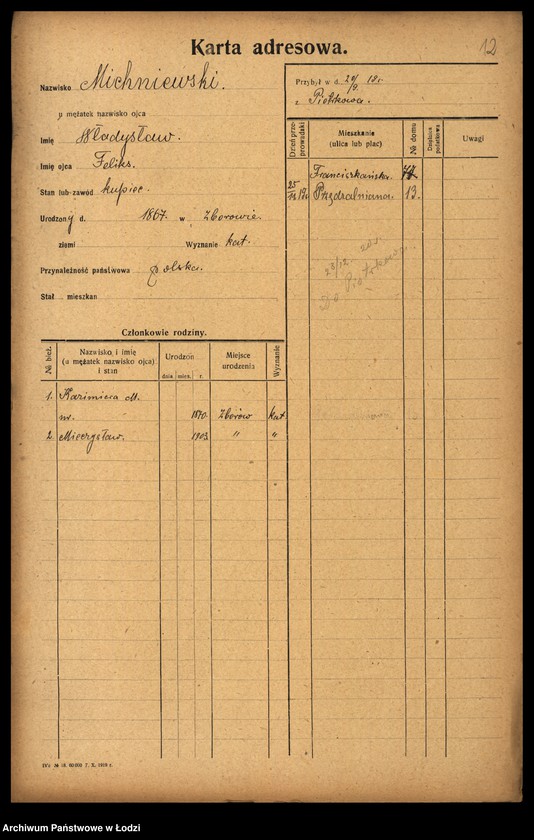 12
Karta adresowa.
Nazwisko Michniewski.
u mężatek nazwisko ojca
Imię Władysław.
Imię ojca Feliks.
Stan lub zawód kupiec.
Urodzony d. 1867. w Zborowie.
ziemi Wyznanie kat.
Przynależność państwowa Polska.
Stał mieszkan
Przybył w d. 20/9. 19 r.
z Piotrkowa.
Dzień przeprowadzki
Mieszkanie (ulica lub plac)
№ domu
Uwagi
Franciszkańska. 77
Przędzalniana. 13.
23/12 20 r.
Do Piotrkowa.
Członkowie rodziny.
№ bież.
Nazwisko i imię (u mężatek nazwisko ojca) i stan
Urodzon
dnia mies. r.
Miejsce urodzenia
Wyznanie
1. Kazimiera M.
1870. Zborów kat
2. Mieczysław. 1903. " "
Archiwum Państwowe w Łodzi